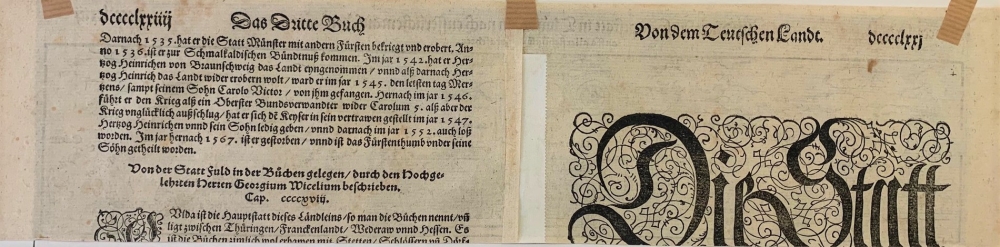 dcccclxxiiij Das Dritte Buch
Darnach 1535. hat er die Statt Münster mit andern Fürsten bekriegt vnd erobert. An-
no 1536. ist er zur Schmalkaldischen Bündtnuß kommen. Im jar 1542. hat er Her-
tzog Heinrichen von Braunschweig das Landt eyngenommen / vnnd alß darnach Her-
tzog Heinrich das Landt wider erobern wolt / ward er im jar 1545. den leisten tag Mer-
tzens / sampt seinem Sohn Carolo Victor / von jhm gefangen. Hernach im jar 1546.
führt er den Krieg alß ein Oberster Bundsverwandter wider Carolum 5. alß aber der
Krieg vnglücklich außschlug / hat er sich dē Keyser in sein vertrawen gestellt im jar 1547.
Hertzog Heinrichen vnnd sein Sohn ledig geben / vnnd darnach im jar 1552. auch loß
worden. Im jar hernach 1567. ist er gestorben / vnnd ist das Fürstenthumb vnder seine
Söhn getheilt worden.
Von der Statt Fuld in der Büchen gelegen / durch den Hochge-
lehrten Herren Georgium Wicelium beschrieben.
Cap. ccccxviij.
FUlda ist die Hauptstatt dieses Ländleins / so man die Büchen nennt / vñ
ligt zwischen Thüringen / Franckenlandt / Wederaw vnnd Hessen. Es
ist die Büchen zimlich wol erbawen mit Stetten / Schlössern vñ Dörf-
Von dem Teutschen Landt. dcccclxxj
Die Statt